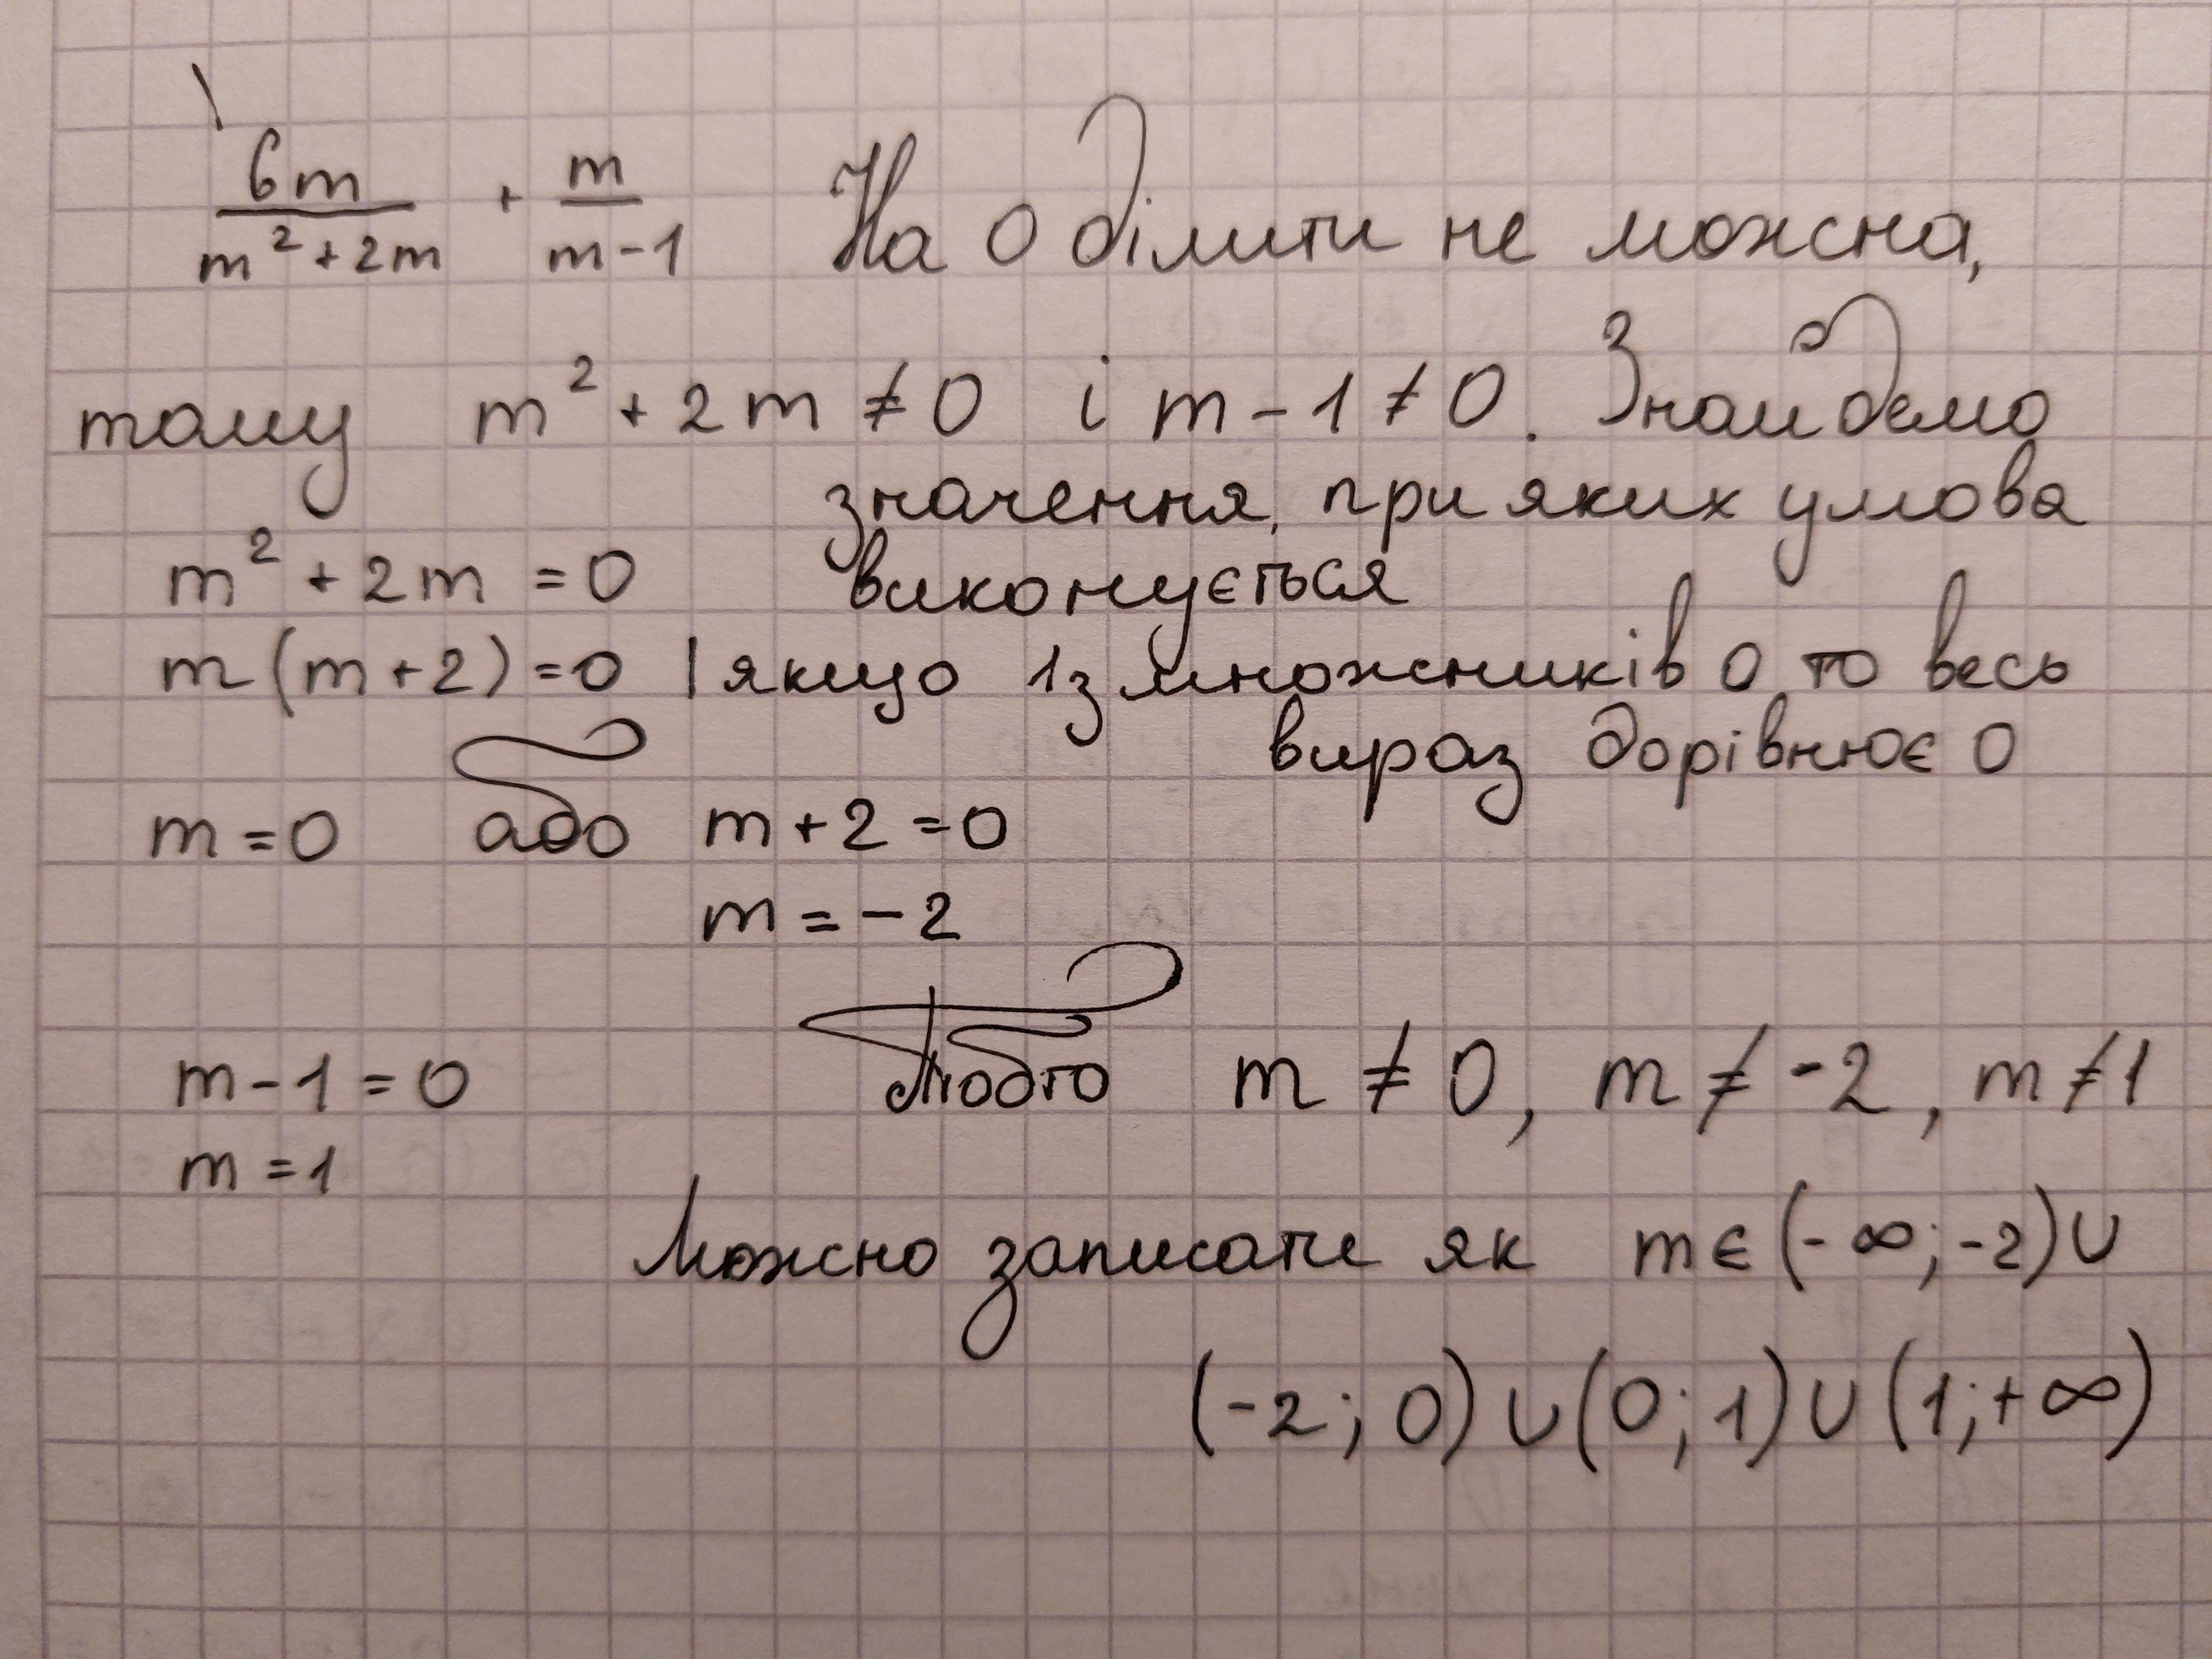 6m/(m²+2m) + m/(m-1) На 0 ділити не можна,
тому m² + 2m ≠ 0 і m - 1 ≠ 0. Знайдемо
значення, при яких умова
m² + 2m = 0 виконується
m(m+2) = 0 | якщо 1 з множників 0 то весь
вираз дорівнює 0
m = 0 або m + 2 = 0
m = -2
m - 1 = 0 Тобто m ≠ 0, m ≠ -2, m ≠ 1
m = 1
Можно записати як m ∈ (-∞; -2) ∪
(-2; 0) ∪ (0; 1) ∪ (1; +∞)